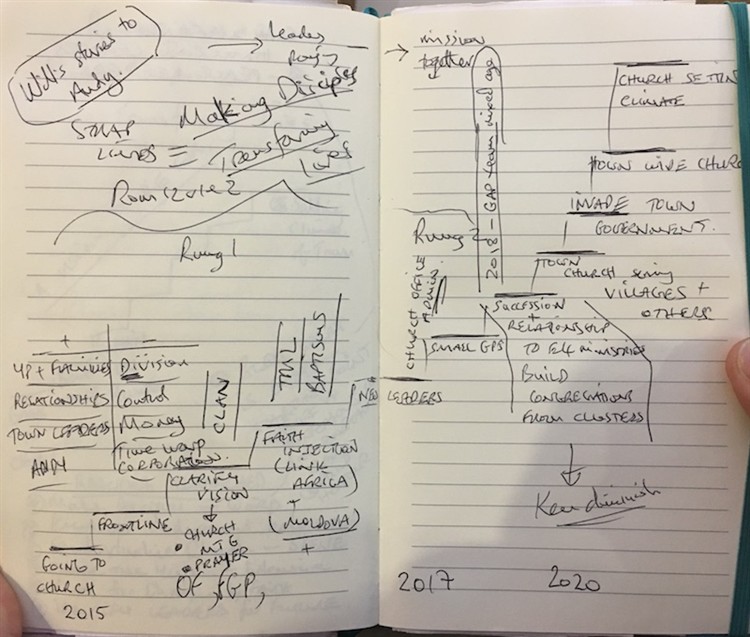 stories to
Andy.
→ leaders
Making Disciples
Transforming
Lives
Rung 1
+ -
YP + FAMILIES Division
RELATIONSHIPS Control
TOWN LEADERS Money
ANDY Time warp
CORPORATION.
CLAN
TML
BAPTISMS
FAITH
INJECTION
(LINK
AFRICA)
+
(MOLDOVA)
+
CLARIFY
VISION
FRONTLINE
• CHURCH
MTG
• PRAYER
GOING TO
CHURCH
2015
→ mission
together
2018 - GAP team mixed age
CHURCH SETTING
CLIMATE
TOWN WIDE CHURC
INVADE TOWN
GOVERNMENT.
Rung 2
TOWN
CHURCH serving
VILLAGES +
OTHERS
CHURCH OFFICE
ADMIN.
SUCCESSION
+
RELATIONSHIP
TO MINISTRIES
BUILD
CONGREGATIONS
FROM CLUSTERS
SMALL GPS
NEW LEADERS
Ken diminish
2017 2020